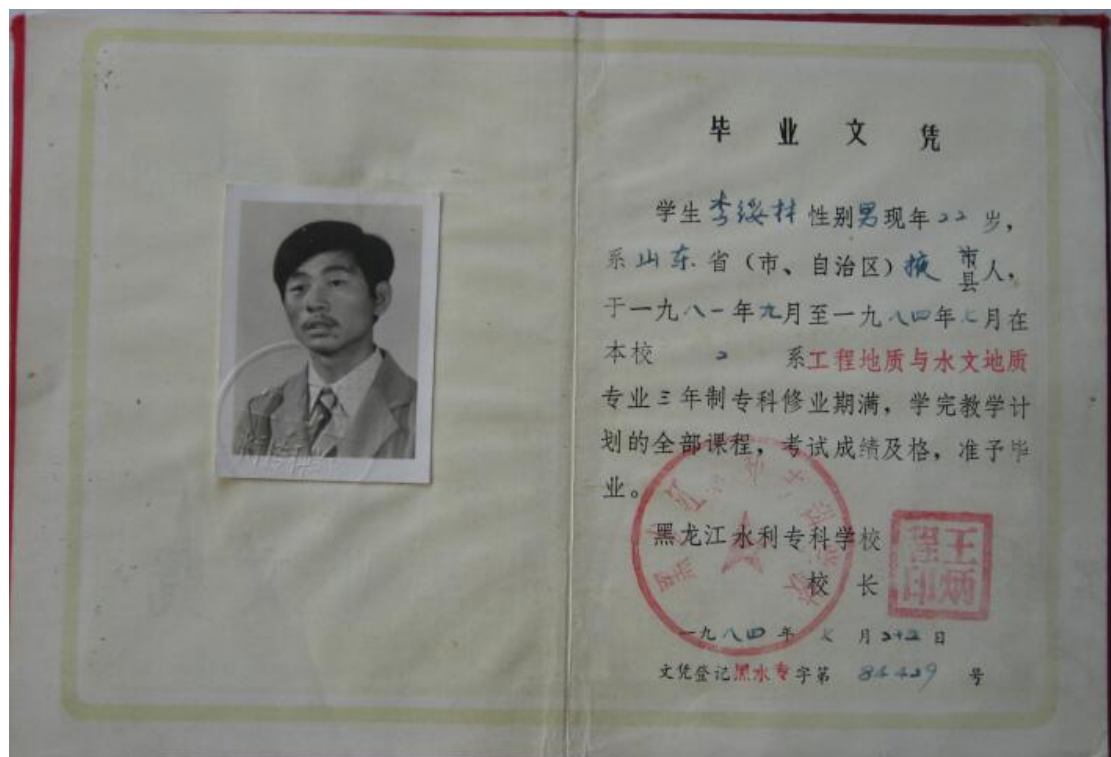 毕业文凭
学生李绥林性别男现年22岁，
系山东省（市、自治区）掖市县人，
于一九八一年九月至一九八四年七月在
本校 2 系工程地质与水文地质
专业三年制专科修业期满，学完教学计
划的全部课程，考试成绩及格，准予毕
业。
黑龙江水利专科学校
校长
王炳程印
一九八四年七月二十五日
文凭登记黑水专字第84429号